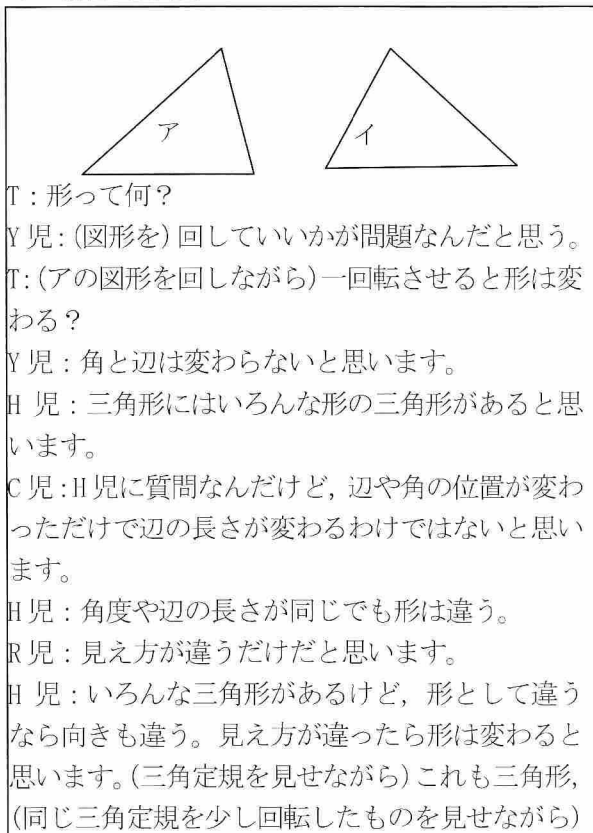 ア
イ
T：形って何？
Y児：(図形を)回していいかが問題なんだと思う。
T：(アの図形を回しながら)一回転させると形は変
わる？
Y児：角と辺は変わらないと思います。
H 児：三角形にはいろんな形の三角形があると思
います。
C児：H児に質問なんだけど，辺や角の位置が変わ
っただけで辺の長さが変わるわけではないと思い
ます。
H児：角度や辺の長さが同じでも形は違う。
R児：見え方が違うだけだと思います。
H 児：いろんな三角形があるけど，形として違う
なら向きも違う。見え方が違ったら形は変わると
思います。(三角定規を見せながら)これも三角形，
(同じ三角定規を少し回転したものを見せながら)